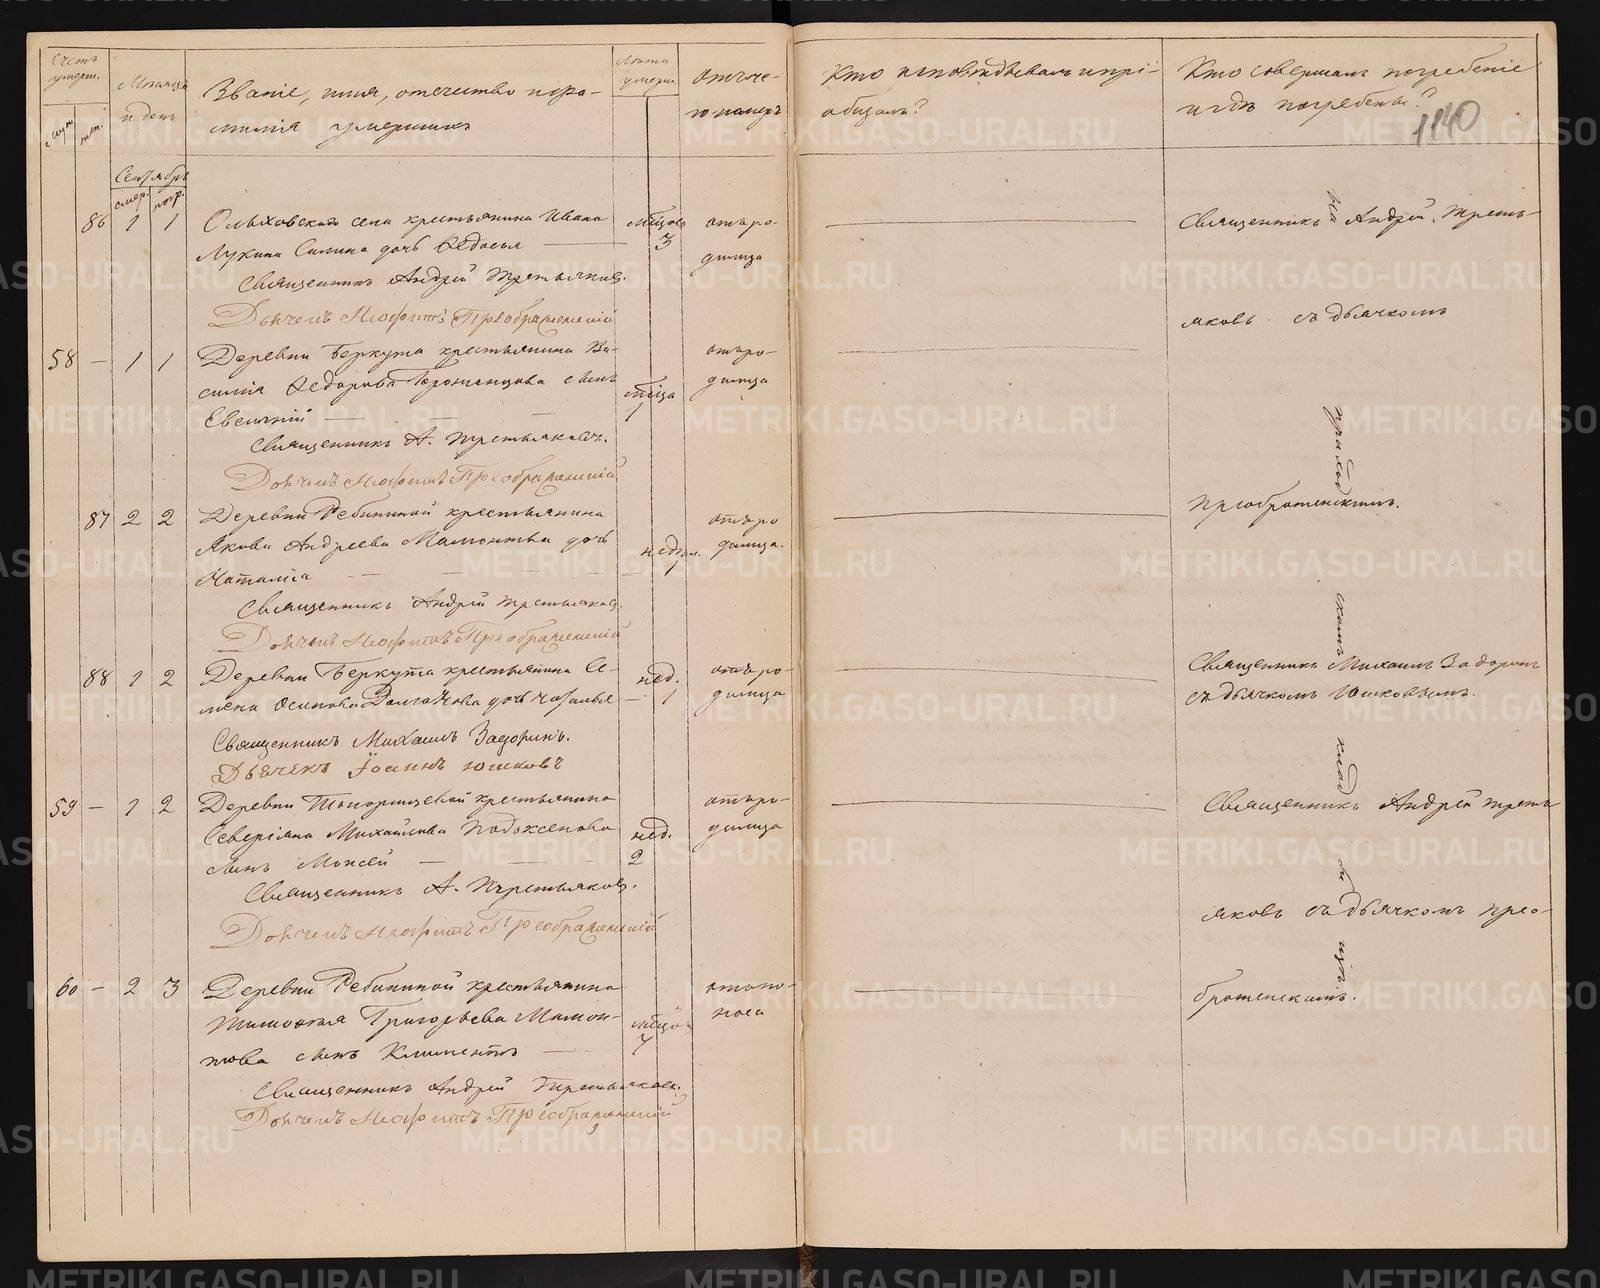 Счетъ умерш.
муж.
жен.
Мѣсяцъ и день
Званіе, имя, отечество и фа-
милія умершихъ
Лѣта умерш.
Отъ че-
го умеръ
Кто исповѣдывалъ и прі-
общалъ?
Кто совершалъ погребеніе
и гдѣ погребены?
1140
Сентябрь
смер. погр.
86 1 1 Ольховскаго села крестьянина Ивана
Лукина Силина дочь Ѳедосья
мѣсяцовъ 3
отъ ро-
димца
Священникъ Андрей Третьяковъ.
Дьячекъ Неофитъ Преображенскій
58 — 1 1 Деревни Беркута крестьянина Ва-
силія Ѳедорова сынъ
Евгеній
мѣсяца 1
отъ ро-
димца
Священникъ А. Третьяковъ.
Дьячекъ Неофитъ Преображенскій
87 2 2 Деревни Ребининой крестьянина
Якова Андреева Мамонтова дочь
Наталія
недѣли. 1
отъ ро
димца.
Священникъ Андрей Третьяковъ.
Дьячекъ Неофитъ Преображенскій
88 1 2 Деревни Беркута крестьянина Се-
мена Осипова дочь Наталья
нед. 1
отъ ро-
димца
Священникъ Михаилъ Задоринъ.
Дьячекъ Іоаннъ Юшковъ
59 — 1 2 Деревни Топорищевой крестьянина
Северіяна Михайлова
сынъ Моисей
нед. 2
отъ ро-
димца
Священникъ А. Третьяковъ.
Дьячекъ Неофитъ Преображенскій
60 — 2 3 Деревни Ребининой крестьянина
Тимофея Григорьева Мамон-
това сынъ Климентъ
мѣсяцовъ 7
отъ по-
носа
Священникъ Андрей Третьяковъ.
Дьячекъ Неофитъ Преображенскій
Священникъ Андрей Треть-
яковъ съ дьячкомъ
Преображенскимъ.
Священникъ Михаилъ Задоринъ
съ дьячкомъ Юшковымъ.
Священникъ Андрей Треть
яковъ съ дьячкомъ Прео-
браженскимъ.
На приходскомъ кладбищѣ
METRIKI.GASO-URAL.RU